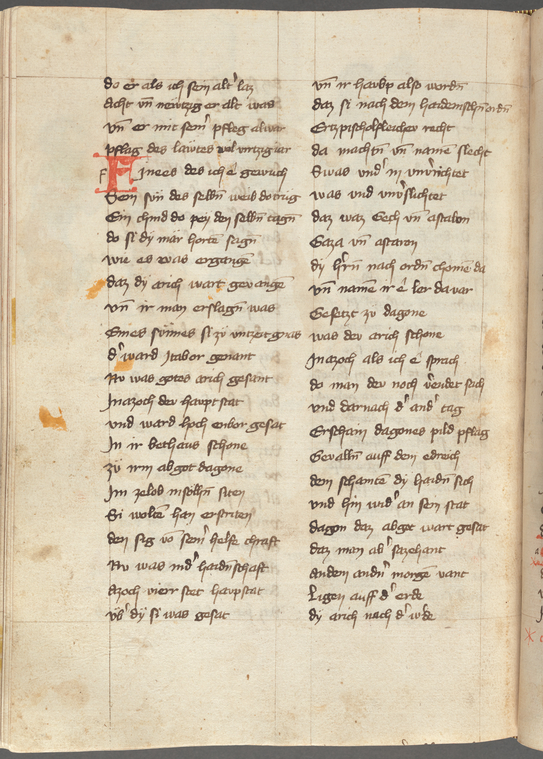 do er als ich sein alt' laz
acht vn̄ newtzig er alt was
vn̄ er mit sein' pfleg alwar
pflag des lawtes wol virtzig iar
Finees des ich e gewuch
Sein sūn des selbn̄ weib do trug
Ein chind do pey den selbn̄ tagn̄
do si dy mär horten sagn̄
wie es was ergangē
daz dy arich wart gevangē
vn̄ ir man erslagn̄ was
Eines sūnnes si zů vntzeit gnas
d' ward Itabor genant
Nv was gotes arich gesant
In azoch der haupt stat
vnd ward hoch enbor gesat
In ir bethaus schone
zů irm abgot dagone
Im zelob in sölhn̄ siten
Si woltē han erstriten
den sig vō sein' helff chraft
Nv was in d' haidnschaft
azoch vierr stet haupstat
vb' dy si was gesat
vn̄ ir haubp also wordn̄
daz si nach dem haidenischn̄ ordn̄
Ertzpischolfleicher recht
da machtn̄ vn̄ namē slecht
Swas vnd' in vnv'richtet
was vnd vnv'slichtet
daz waz Gech vn̄ ascalon
Gaza vn̄ astaron
dy h'rn̄ nach ordn̄ chomē da
vn̄ namē ir e ler da var
Gesetzt zů dagone
was der arich schone
In azoch als ich e sprach
do man der noch v'endet sich
vnd darnach d' and' tag
Erschain dagones pild pflag
Gevalln̄ auff dem edreich
dem schamtē dy haidn̄ sich
vnd hin wid' an sein stat
dagon daz abgot wart gesat
daz man ab' sazehant
an dem andn̄ morgē vant
Ligen auff d' erde
dy arich nach d' w'de